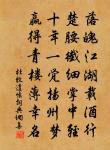 落魄江湖載酒行
楚腰纖細掌中輕
十年一覺揚州夢
贏得青樓薄幸名
杜牧遣懷